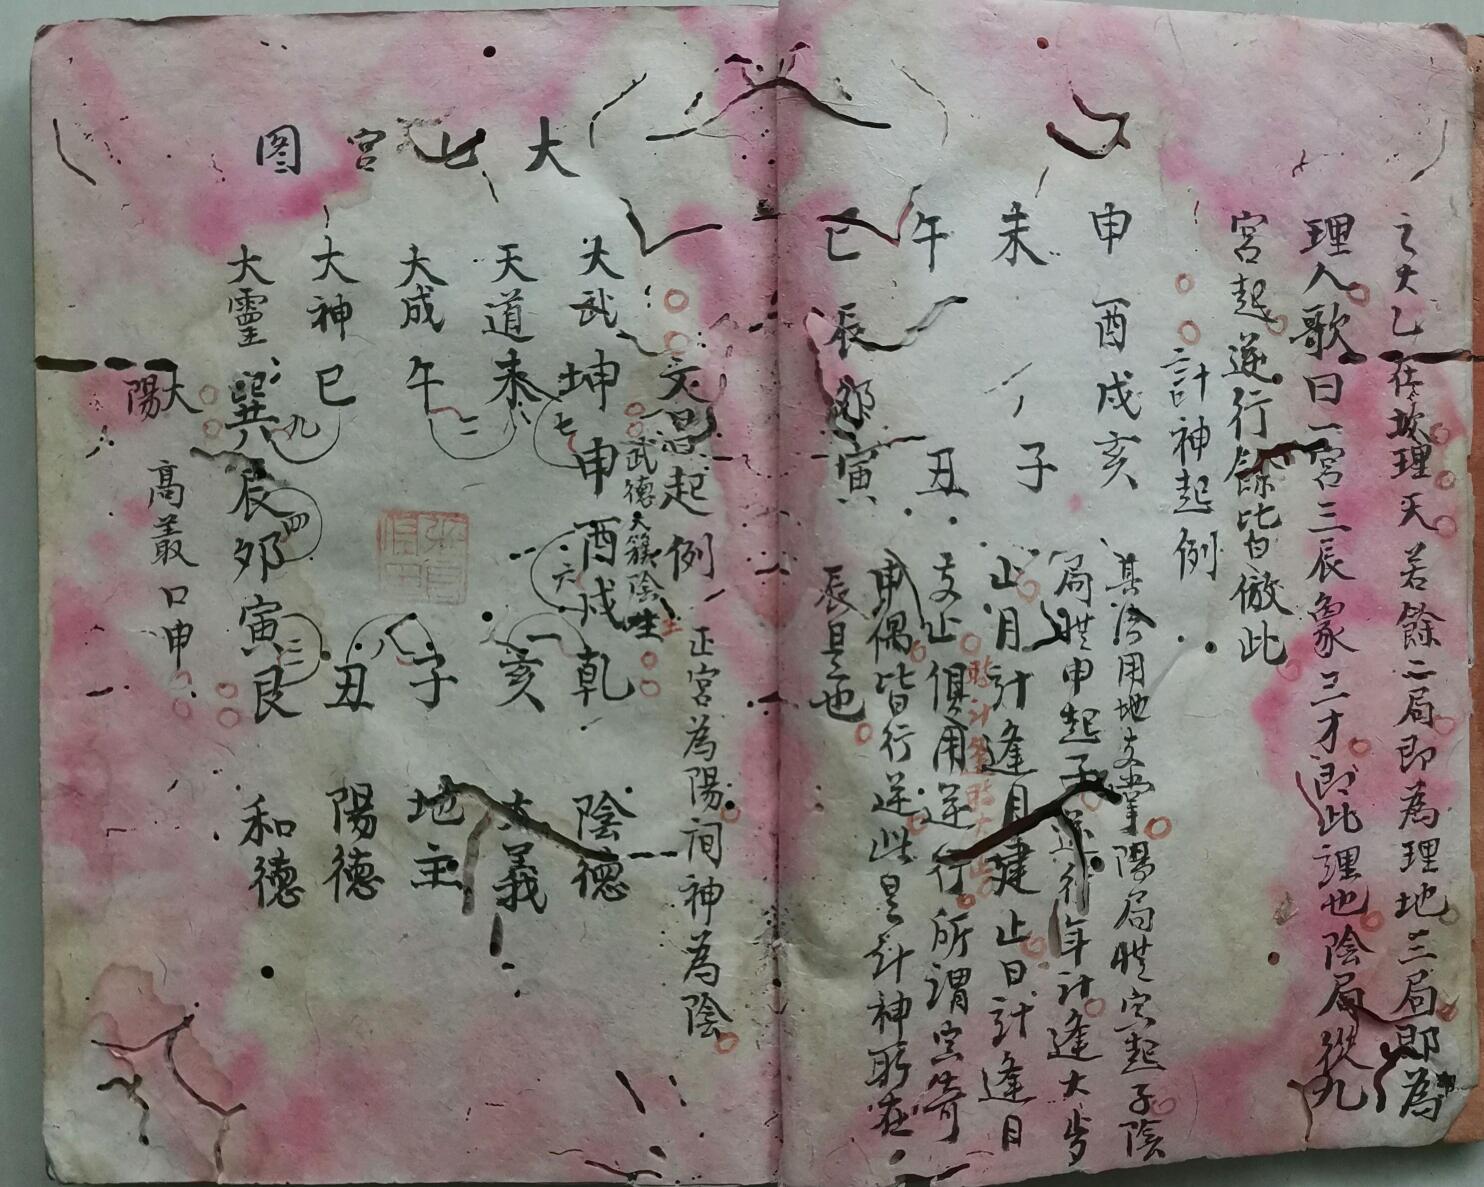 之大乙在坎理天若餘二局即為理地三局即為
理人歌曰一宮三辰象三才即此理也陰局從九
宮起逆行餘皆倣此
計神起例
其法用地支掌陽局𭥍寅起子陰
局𭥍申起子逆行年計逢大歲
止月計逢月建止日計逢日
支止俱用逆行所謂寅奇
申偶皆行逆此是計神所在
辰是也
申 酉 戌 亥
未 子
午 丑
巳 辰 卯 寅
文昌起例 正宮為陽间神為陰
武德大簇陰主
大乙宮图
大武 坤 七 申 酉 六 戌 乾 陰德
天道 未 一 亥 大義
大成 午 二 八 子 地主
大神 巳 九 丑 陽德
大靈 巽 辰 四 卯 寅 三 艮 和德
大陽
高叢口申